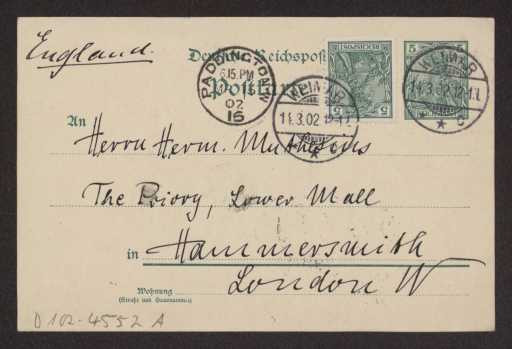 England.
Deutsche Reichspost
Postkarte
5 REICHSPOST 5
5 5
PADDINGTON. W
6.15. PM
02
16
WEIMAR
11.3.02.12-1.
WEIMAR
11.3.02.12-1.
c
An Herrn Herm. Muthesius
The Priory, Lower Mall
in Hammersmith
London W
Wohnung
(Straße und Hausnummer)
D 102-4552 A